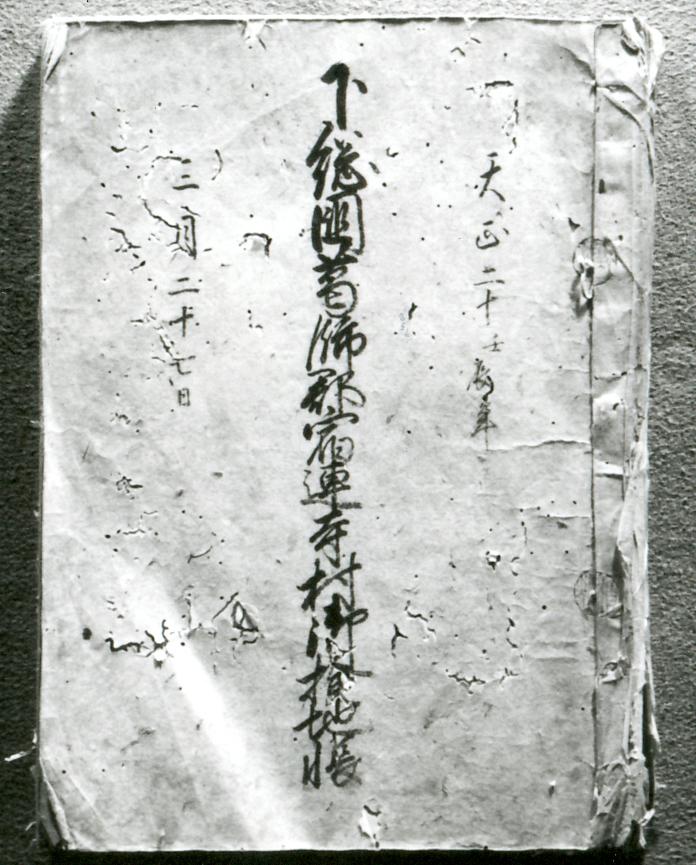 天正二十壬辰年
下総国葛飾郡宿連寺村御検地帳
三月二十七日